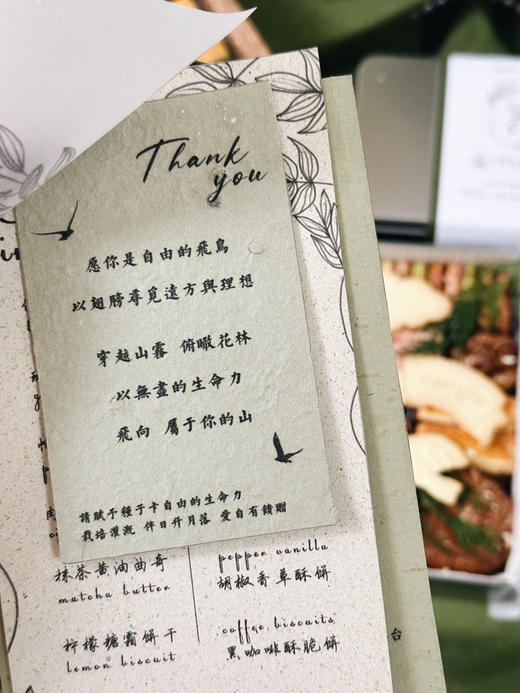 Thank
you
愿你是自由的飛鳥
以翅膀尋覓遠方與理想
穿越山霧 俯瞰花林
以無盡的生命力
飛向 屬于你的山
請賦于種子卡自由的生命力
栽培灌溉 伴日升月落 愛自有饋贈
抹茶黄油曲奇
matcha butter
pepper vanilla
胡椒香草酥餅
柠檬糖霜餅干
lemon biscuit
coffee biscuits
黑咖啡酥脆餅
台